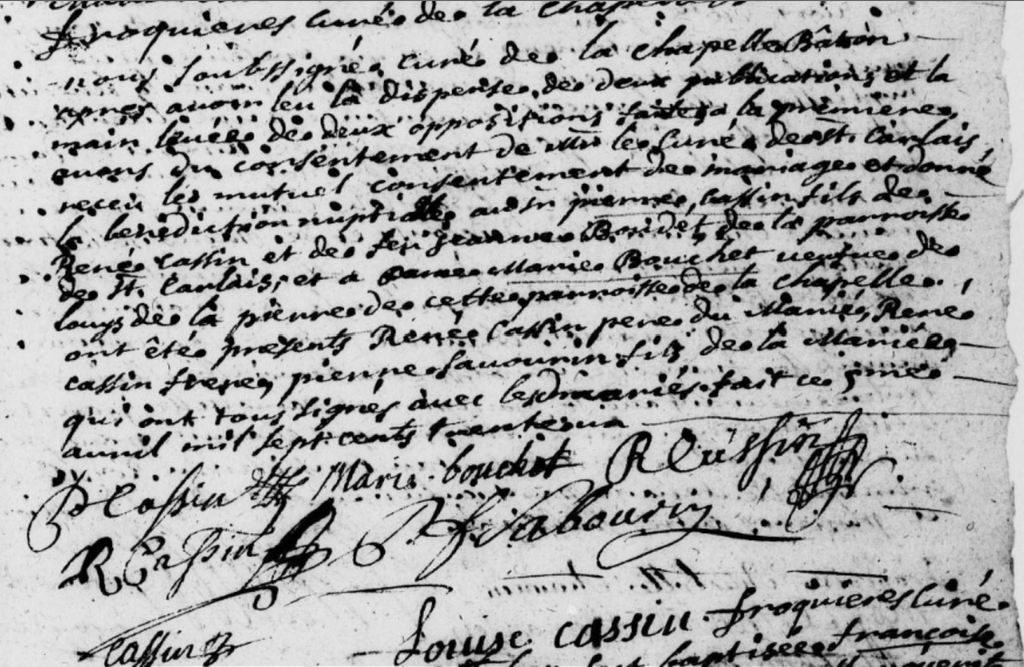 froquieres curé de la chapelle
nous soubssigné curé de la chapelle Bâton
apres avoir leu la dispense de deux publications et la
main levée de deux oppositions faites a la premiere
avons du consentement de Mr le Curé de st. Carlais,
receu le mutuel consentement de mariage et donné
la benediction nuptialle au Sr pierre Cassin fils de
René Cassin et de feu Jeanne Bordet de la parroisse
de st. Carlais, et a Marie Bouchet veufve de
louys de la pierre de cette parroisse de la chapelle
ont été presents René Cassin pere du Marié, René
Cassin frere, pierre Savourin fils de la Mariée
qui ont tous signés avec les mariés. fait ce 5me
avril mil sept cents trente
P Cassin Marie bouchet R Cassin
R Cassin P Sabourin
Cassin Louise Cassin froquieres Curé
baptisée françoise